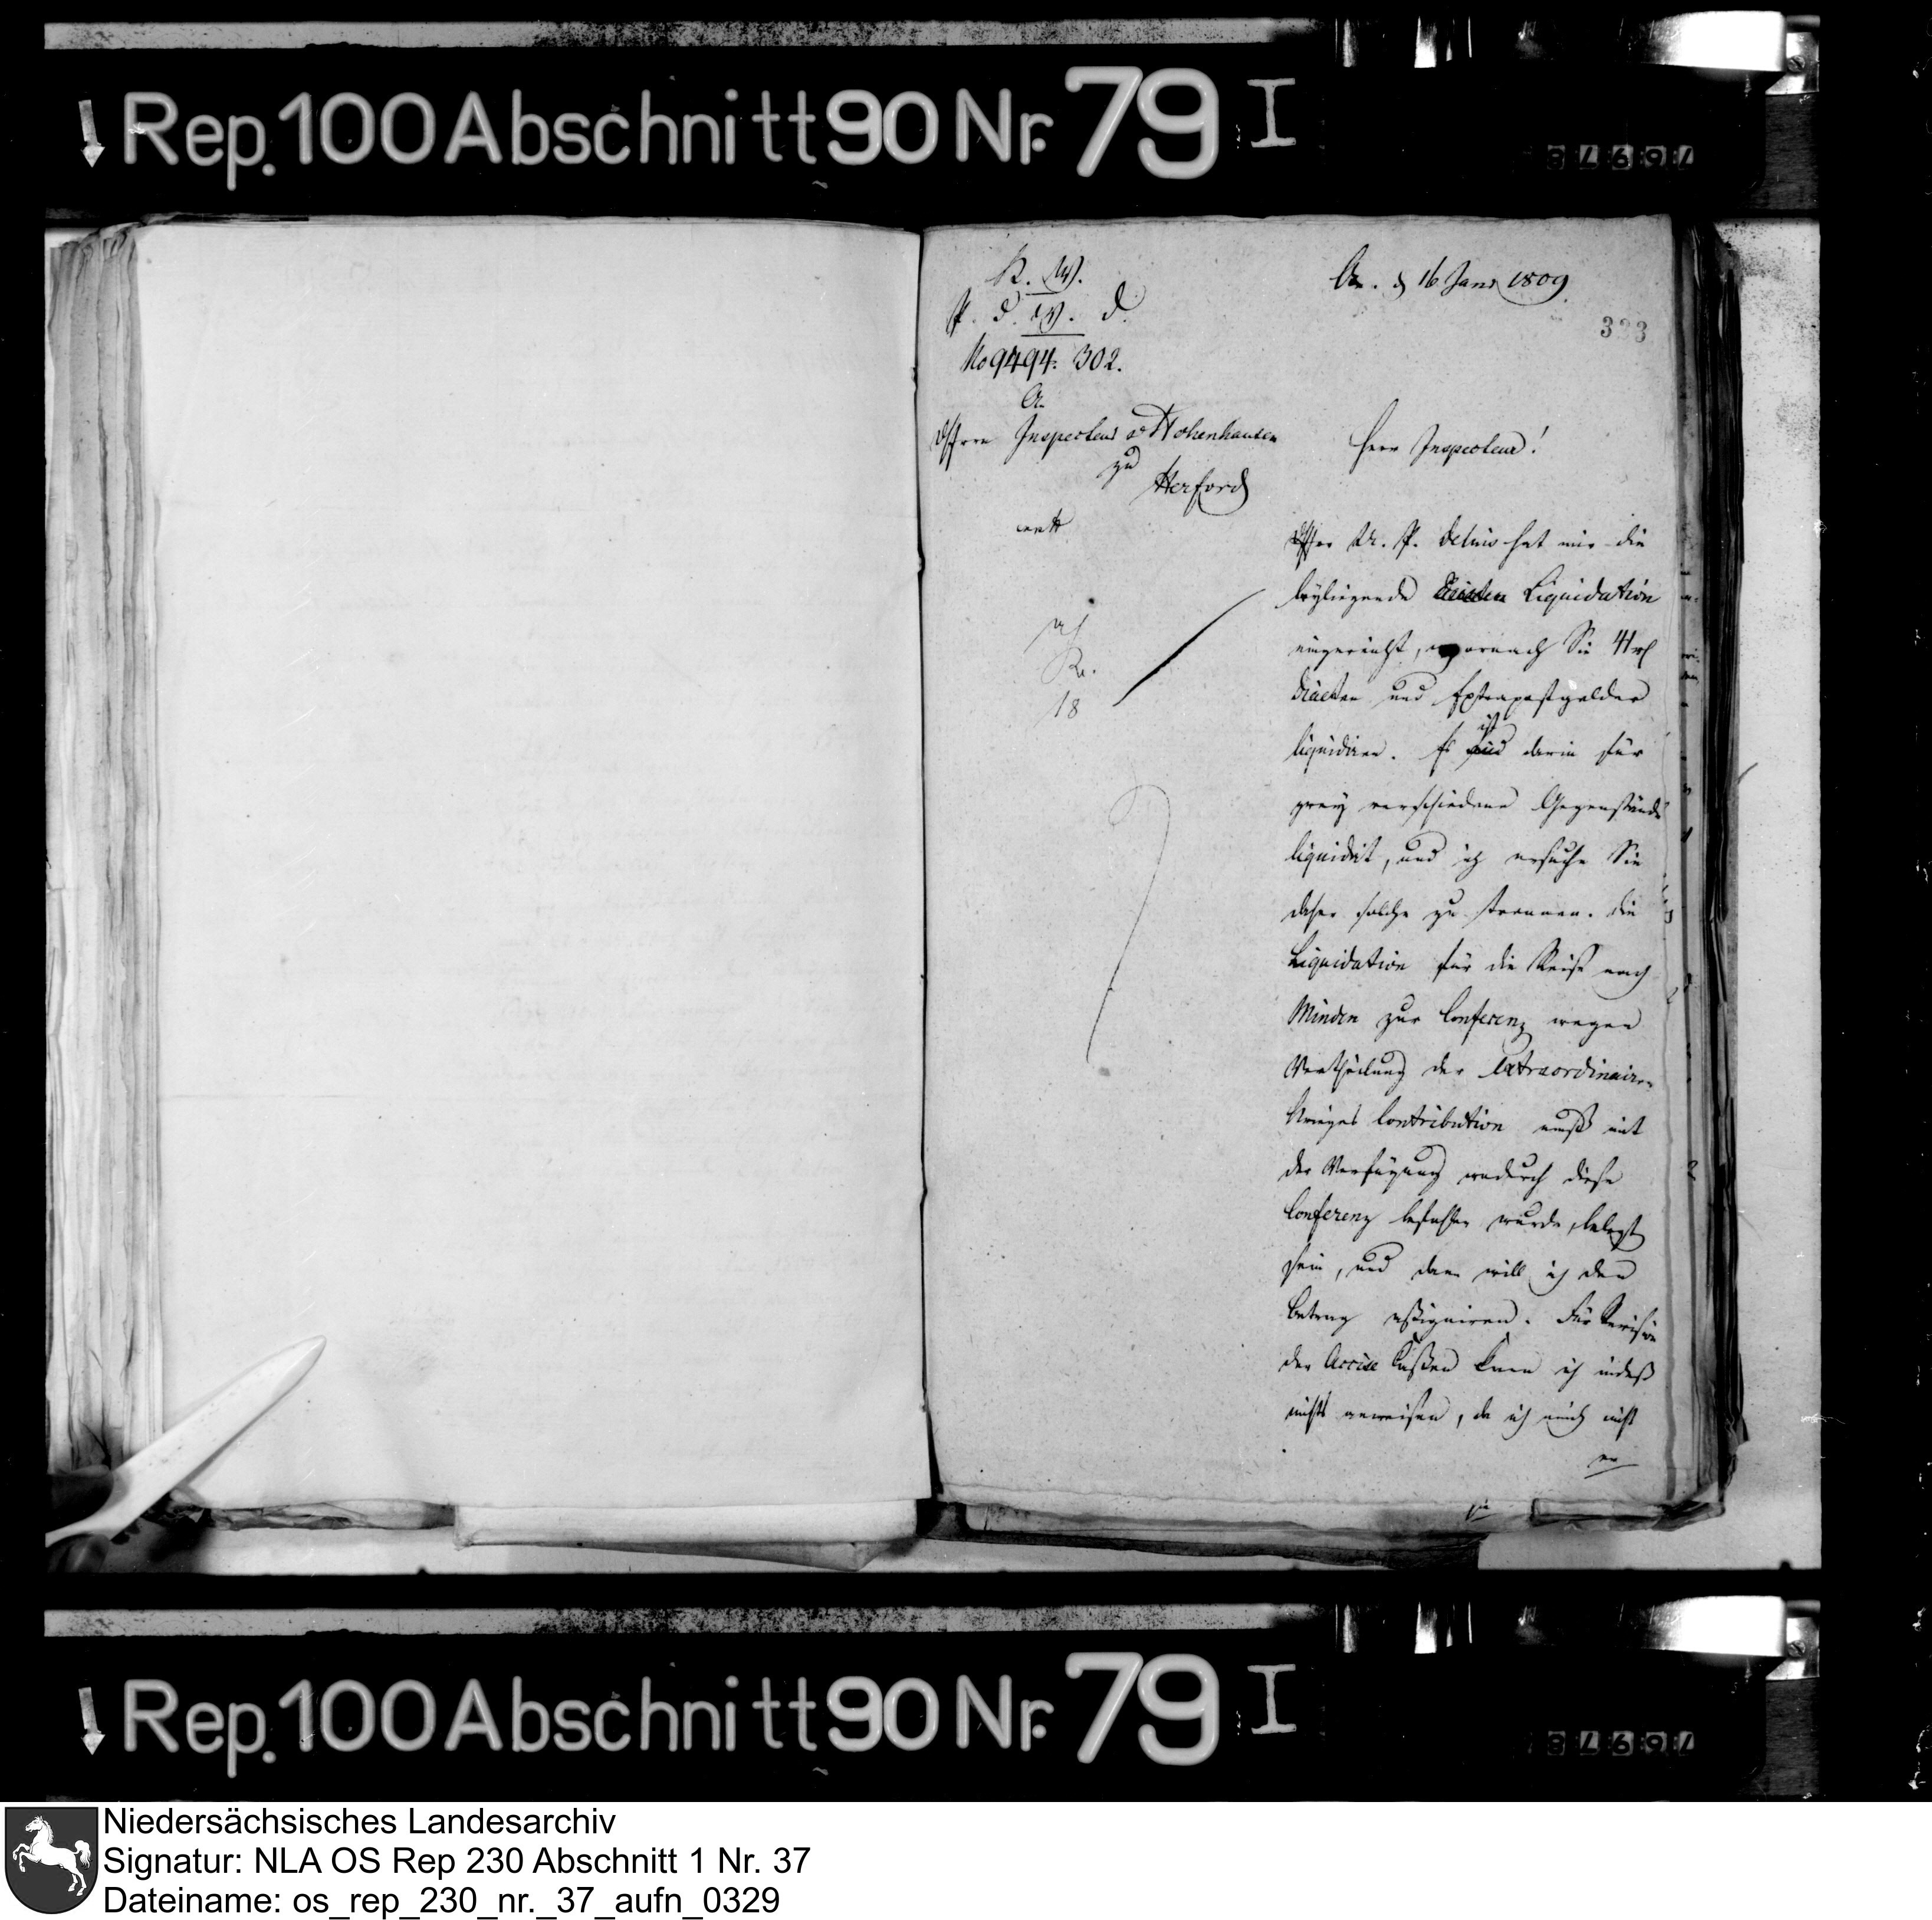 Rep. 100 Abschnitt 90 Nr. 79 I
76978
K. W.
P. d. W. d.
No 9494. 302.
a.
Herrn Inspecteur v Hohenhausen
zu
Herford
Os. d 16 Janr 1809.
333
Herr Inspecteur!
Herr U. P. Delius hat mir die
beyliegende Liquidation
eingereicht, wornach Sie 41 rl
Diaeten und Extrapostgelder
liquidiren. Es ist darin für
zwey verschiedene Gegenstände
liquidirt, und ich ersuche Sie
daher solche zu trennen. Die
Liquidation für die Reise nach
Minden zur Conferenz wegen
Vertheilung der extraordinairen
Krieges Contribution muß mit
der Verfügung wodurch diese
Conferenz befohlen wurde, belegt
sein, und dann will ich den
Betrag assigniren. Für Revision
der Accise Cassen kann ich indeß
nichts anweisen, da ich mich nicht
18
Rep. 100 Abschnitt 90 Nr. 79 I
76978
Niedersächsisches Landesarchiv
Signatur: NLA OS Rep 230 Abschnitt 1 Nr. 37
Dateiname: os_rep_230_nr._37_aufn_0329